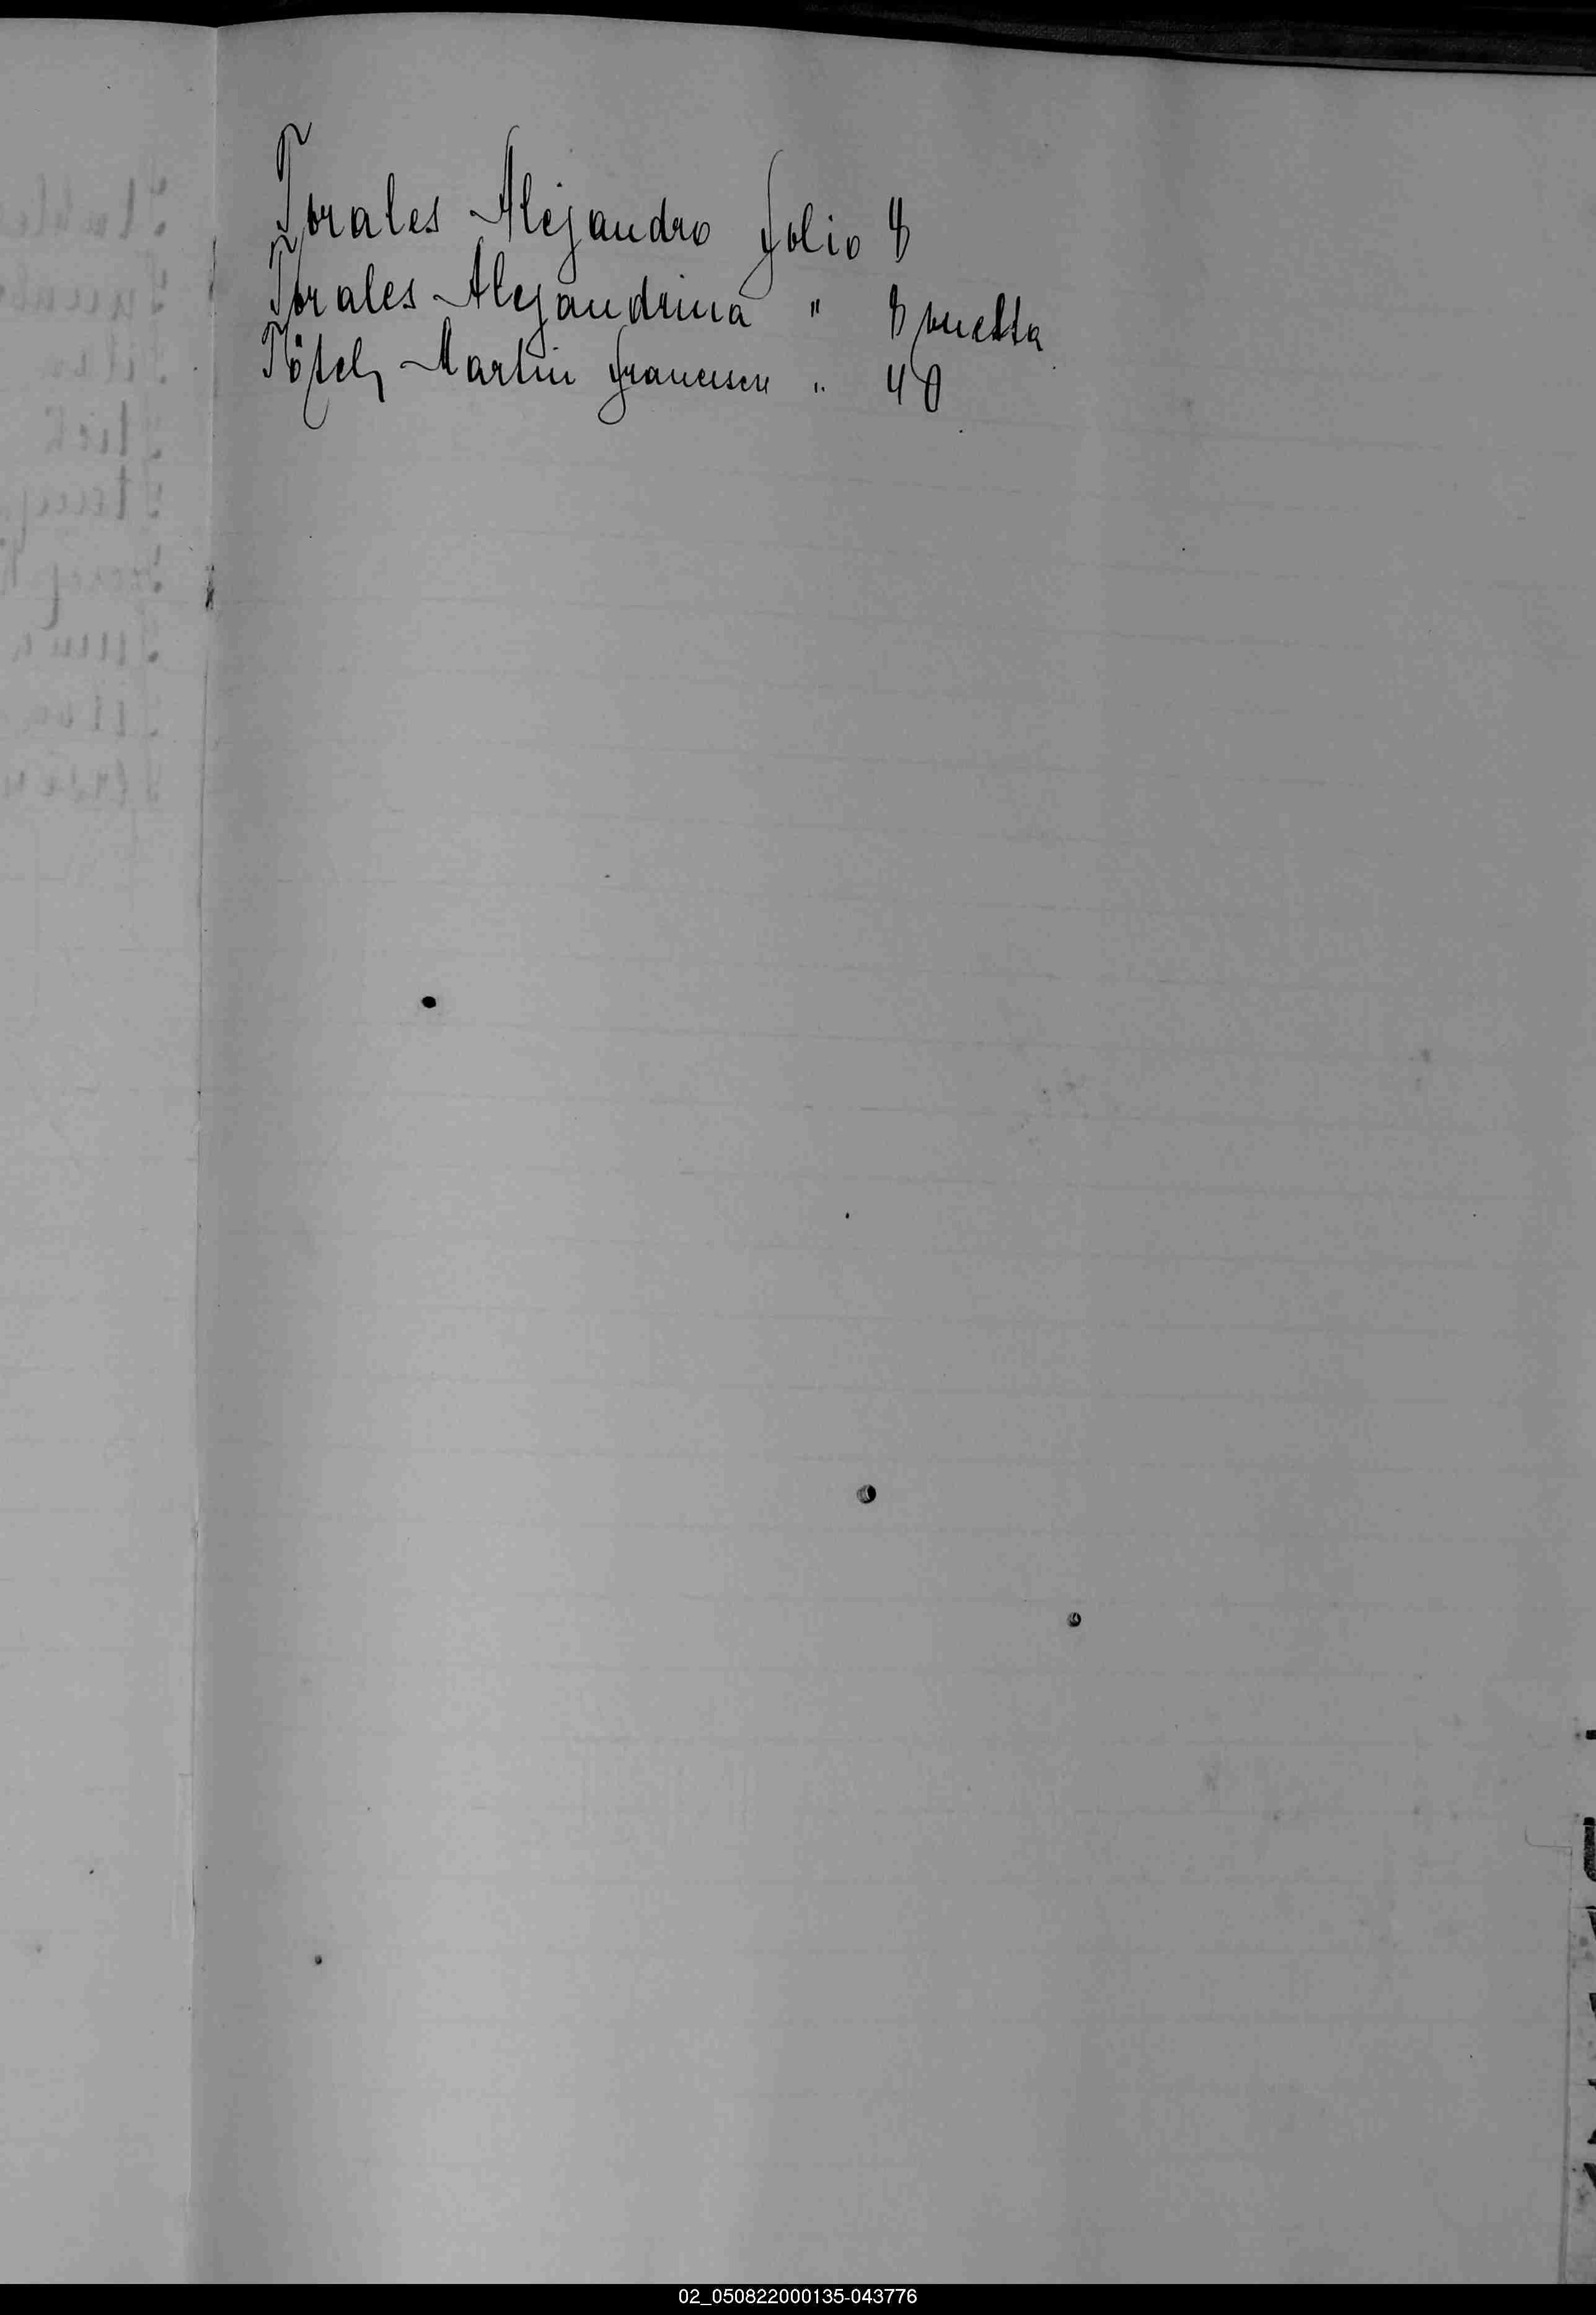 Torales Alejandro folio 8
Torales Alejandrina " 8 vuelta
Martin Francisco " 40
02_050822000135-043776